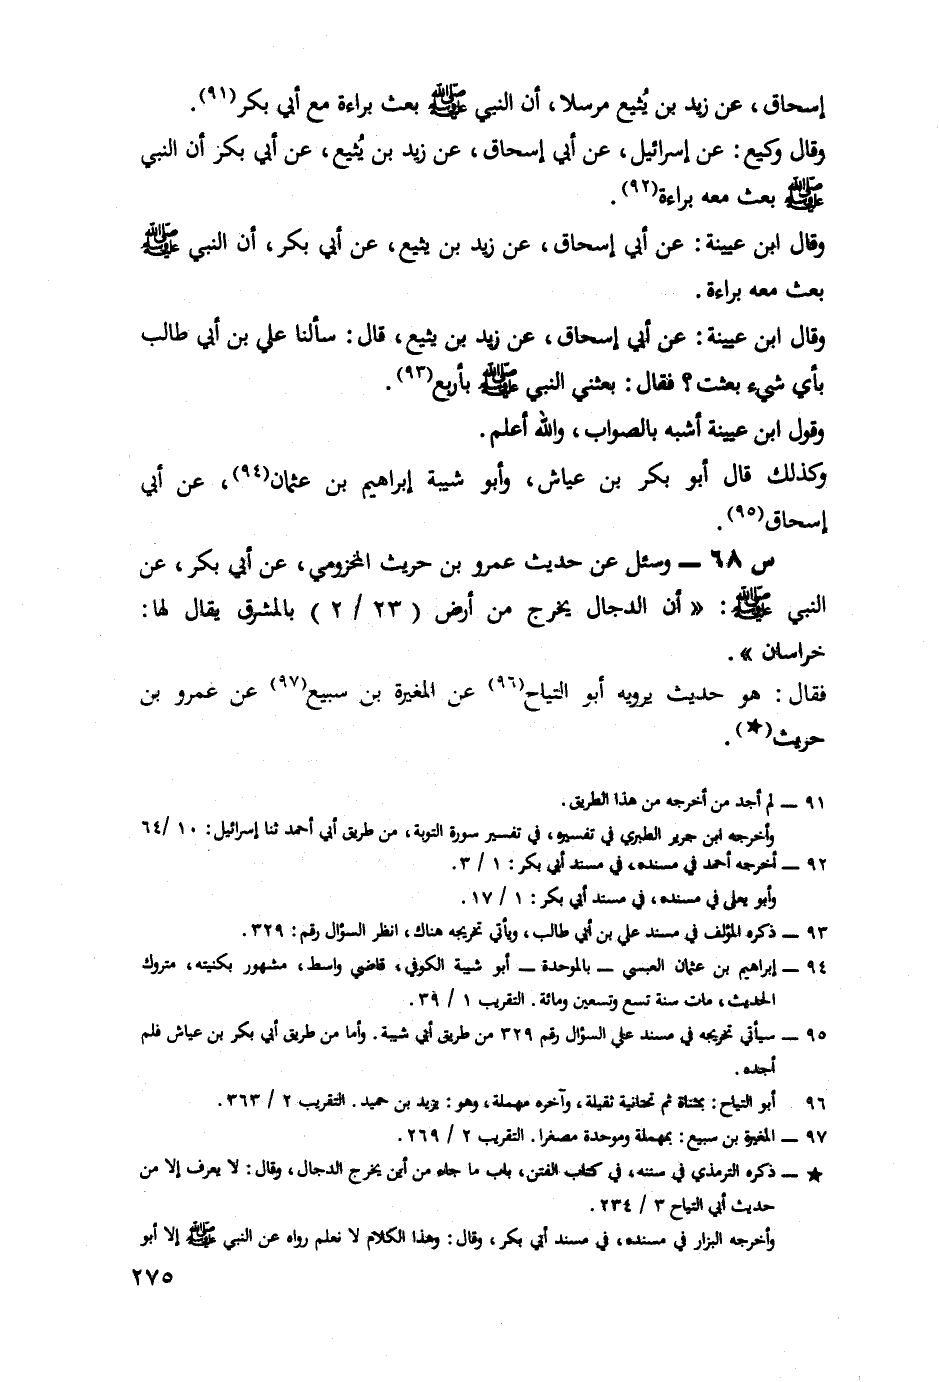 إسحاق ، عن زيد بن يُثيع مرسلا ، أن النبي ﷺ بعث براءة مع أبي بكر(٩١) .
وقال وكيع : عن إسرائيل ، عن أبي إسحاق ، عن زيد بن يُثيع ، عن أبي بكر أن النبي
ﷺ بعث معه براءة(٩٢) .
وقال ابن عيينة : عن أبي إسحاق ، عن زيد بن يثيع ، عن أبي بكر ، أن النبي ﷺ
بعث معه براءة .
وقال ابن عيينة : عن أبي إسحاق ، عن زيد بن يثيع ، قال : سألنا علي بن أبي طالب
بأي شيء بعثت ؟ فقال : بعثني النبي ﷺ بأربع(٩٣) .
وقول ابن عيينة أشبه بالصواب ، والله أعلم .
وكذلك قال أبو بكر بن عياش ، وأبو شيبة إبراهيم بن عثمان(٩٤) ، عن أبي
إسحاق(٩٥) .
س ٦٨ — وسئل عن حديث عمرو بن حريث المخزومي ، عن أبي بكر ، عن
النبي ﷺ : « أن الدجال يخرج من أرض ( ٢٣ / ٢ ) بالمشرق يقال لها :
خراسان » .
فقال : هو حديث يرويه أبو التياح(٩٦) عن المغيرة بن سبيع(٩٧) عن عمرو بن
حريث(★) .
٩١ — لم أجد من أخرجه من هذا الطريق .
وأخرجه ابن جرير الطبري في تفسيره ، في تفسير سورة التوبة ، من طريق أبي أحمد ثنا إسرائيل : ١٠ /٦٤
٩٢ — أخرجه أحمد في مسنده ، في مسند أبي بكر : ١ / ٣ .
وأبو يعلى في مسنده ، في مسند أبي بكر : ١ / ١٧ .
٩٣ — ذكره المؤلف في مسند علي بن أبي طالب ، ويأتي تخريجه هناك ، انظر السؤال رقم : ٣٢٩ .
٩٤ — إبراهيم بن عثمان العبسي — بالموحدة — أبو شيبة الكوفي ، قاضي واسط ، مشهور بكنيته ، متروك
الحديث ، مات سنة تسع وتسعين ومائة . التقريب ١ / ٣٩ .
٩٥ — سيأتي تخريجه في مسند علي السؤال رقم ٣٢٩ من طريق أبي شيبة . وأما من طريق أبي بكر بن عياش فلم
أجده .
٩٦ أبو التياح : بمثناة ثم تحتانية ثقيلة ، وآخره مهملة ، وهو : يزيد بن حميد . التقريب ٢ / ٣٦٣ .
٩٧ — المغيرة بن سبيع : بمهملة وموحدة مصغرا . التقريب ٢ / ٢٦٩ .
★ — ذكره الترمذي في سننه ، في كتاب الفتن ، باب ما جاء من أين يخرج الدجال ، وقال : لا يعرف إلا من
حديث أبي التياح ٣ / ٢٣٤ .
وأخرجه البزار في مسنده ، في مسند أبي بكر ، وقال : وهذا الكلام لا نعلم رواه عن النبي ﷺ إلا أبو
٢٧٥